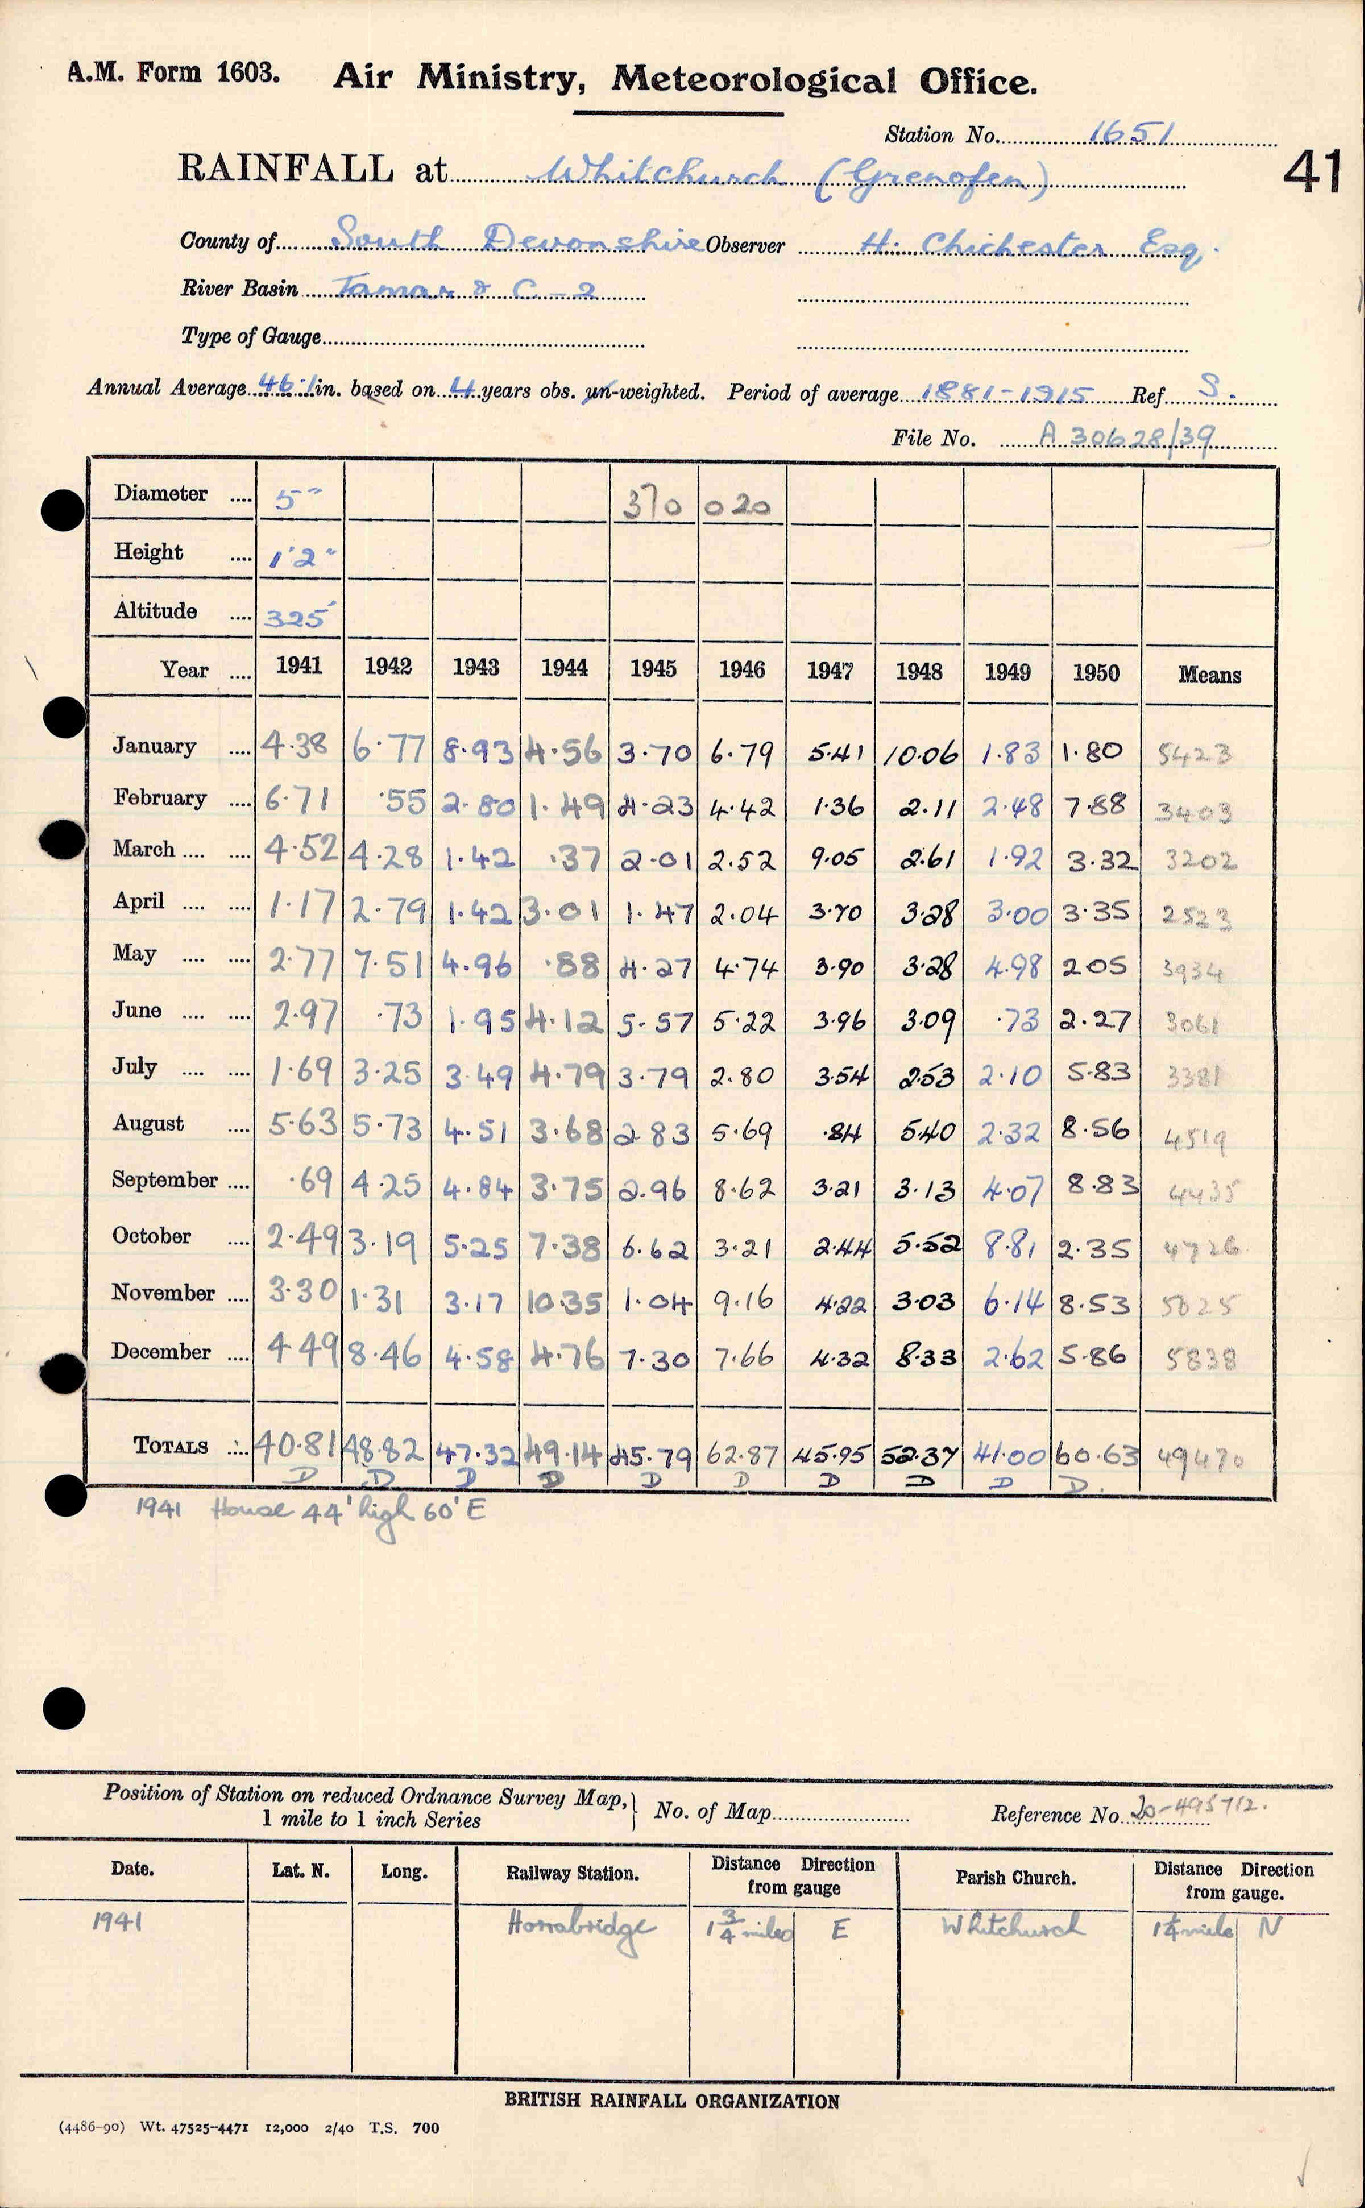 A.M. Form 1603. Air Ministry, Meteorological Office.
Station No. 1651
41
RAINFALL at Whitchurch (Grenofen)
County of South Devonshire Observer H. Chichester Esq.
River Basin Tamar & C-2
Type of Gauge
Annual Average 46.1 in. based on 4 years obs. un-weighted. Period of average 1881-1915 Ref S.
File No. A 30628/39
Diameter .... 5" 370 020
Height .... 1'2"
Altitude .... 325'
Year .... 1941 1942 1943 1944 1945 1946 1947 1948 1949 1950 Means
January .... 4.38 6.77 8.93 4.56 3.70 6.79 5.41 10.06 1.83 1.80 5423
February .... 6.71 .55 2.80 1.49 4.23 4.42 1.36 2.11 2.48 7.88 3403
March .... .... 4.52 4.28 1.42 .37 2.01 2.52 9.05 2.61 1.92 3.32 3202
April .... .... 1.17 2.79 1.42 3.01 1.47 2.04 3.70 3.28 3.00 3.35 2523
May .... .... 2.77 7.51 4.96 .88 4.27 4.74 3.90 3.28 4.98 2.05 3934
June .... .... 2.97 .73 1.95 4.12 5.57 5.22 3.96 3.09 .73 2.27 3061
July .... .... 1.69 3.25 3.49 4.79 3.79 2.80 3.54 2.53 2.10 5.83 3381
August .... 5.63 5.73 4.51 3.68 2.83 5.69 .84 5.40 2.32 8.56 4519
September .... .69 4.25 4.84 3.75 2.96 8.62 3.21 3.13 4.07 8.83 4435
October .... 2.49 3.19 5.25 7.38 6.62 3.21 2.44 5.52 8.81 2.35 4726
November .... 3.30 1.31 3.17 10.35 1.04 9.16 4.22 3.03 6.14 8.53 5025
December .... 4.49 8.46 4.58 4.76 7.30 7.66 4.32 8.33 2.62 5.86 5838
TOTALS .... 40.81 48.82 47.32 49.14 45.79 62.87 45.95 52.37 41.00 60.63 49470
D D D D D D D D D D.
1941 House 44' high 60' E
Position of Station on reduced Ordnance Survey Map, 1 mile to 1 inch Series } No. of Map Reference No. 20-495712.
Date. Lat. N. Long. Railway Station. Distance Direction from gauge Parish Church. Distance Direction from gauge.
1941 Horrabridge 1 3/4 miles E Whitchurch 1 1/4 miles N
BRITISH RAINFALL ORGANIZATION
(4486-90) Wt. 47525-4471 12,000 2/40 T.S. 700